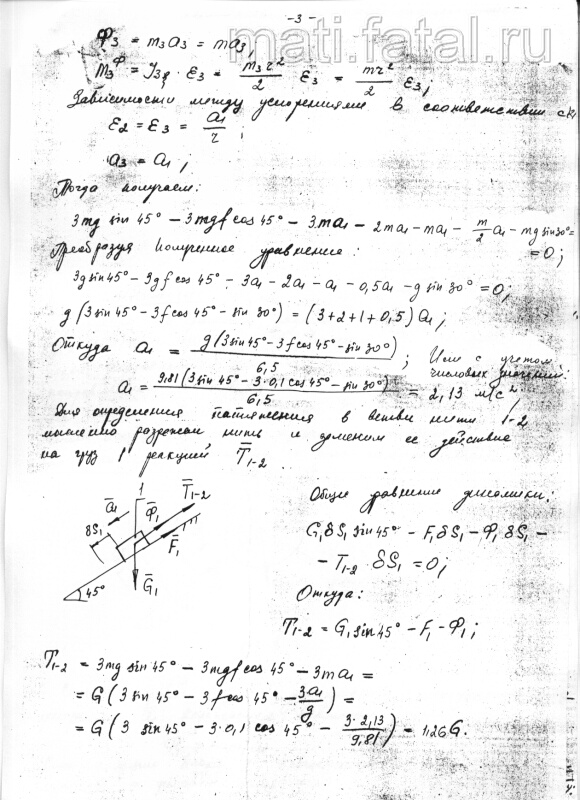 -3-
mati.fatal.ru
Φ₃ = m₃a₃ = ma₃,
m₃^Φ = J₃ · ε₃ = m₃r²/2 ε₃ = mr²/2 ε₃,
Зависимости между ускорениями в соответствии с
ε₂ = ε₃ = a₁/r ;
a₃ = a₁ ,
Тогда получаем:
3mg sin 45° − 3mgf cos 45° − 3ma₁ − 2ma₁ − ma₁ − m/2 a₁ − mg sin 30° =
= 0;
Преобразуя полученное уравнение:
3g sin 45° − 3gf cos 45° − 3a₁ − 2a₁ − a₁ − 0,5a₁ − g sin 30° = 0;
g (3 sin 45° − 3f cos 45° − sin 30°) = (3+2+1+0,5) a₁;
Откуда a₁ = g(3 sin 45° − 3f cos 45° − sin 30°)/6,5 ; Или с учетом
числовых значений:
a₁ = 9,81(3 sin 45° − 3·0,1 cos 45° − sin 30°)/6,5 = 2,13 м/с²,
Для определения натяжения в ветви нити 1-2
мысленно разрежем нить и заменим ее действие
на груз 1 реакцией T̄₁₋₂
ā₁ 1 T̄₁₋₂
δS₁ Φ̄₁
F̄₁
Ḡ₁
45°
Общее уравнение динамики:
G₁δS₁ sin 45° − F₁δS₁ − Φ₁ δS₁ −
− T₁₋₂ · δS₁ = 0;
Откуда:
T₁₋₂ = G₁ sin 45° − F₁ − Φ₁;
T₁₋₂ = 3mg sin 45° − 3mgf cos 45° − 3ma₁ =
= G (3 sin 45° − 3f cos 45° − 3a₁/g) =
= G (3 sin 45° − 3·0,1 cos 45° − 3·2,13/9,81) = 1,26G.